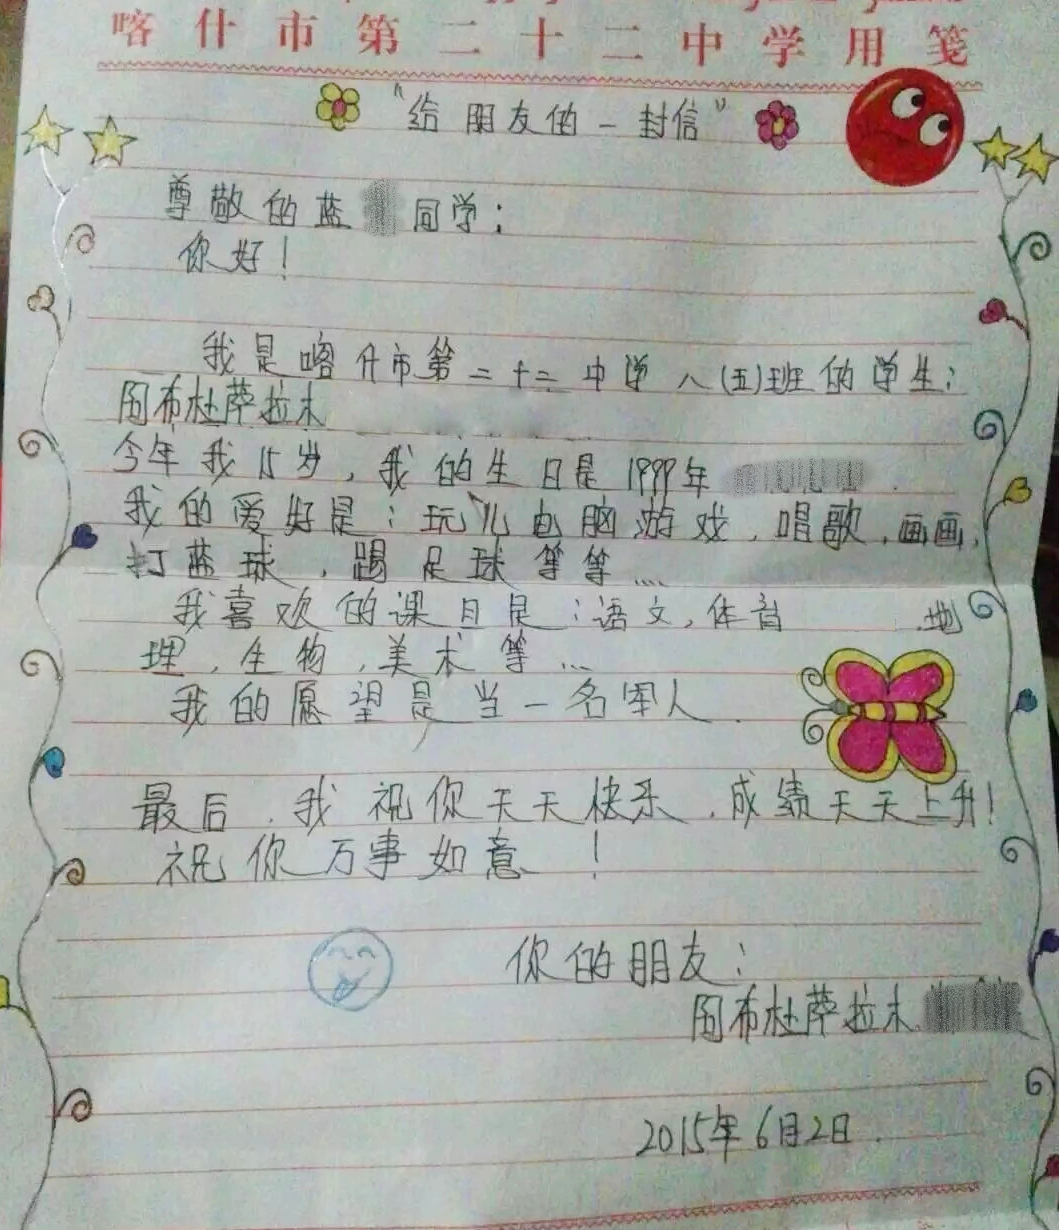 喀什市第二十二中学用笺
“给朋友的一封信”
尊敬的蓝 同学:
你好!
我是喀什市第二十二中学八(五)班的学生:
阿布杜萨拉木
今年我15岁,我的生日是1999年
我的爱好是:玩儿电脑游戏,唱歌,画画,
打蓝球,踢足球等等....
我喜欢的课目是:语文,体育 ,地
理,生物,美术等...
我的愿望是当一名军人.
最后,我祝你天天快乐,成绩天天上升!
祝你万事如意!
你的朋友:
阿布杜萨拉木
2015年6月2日.